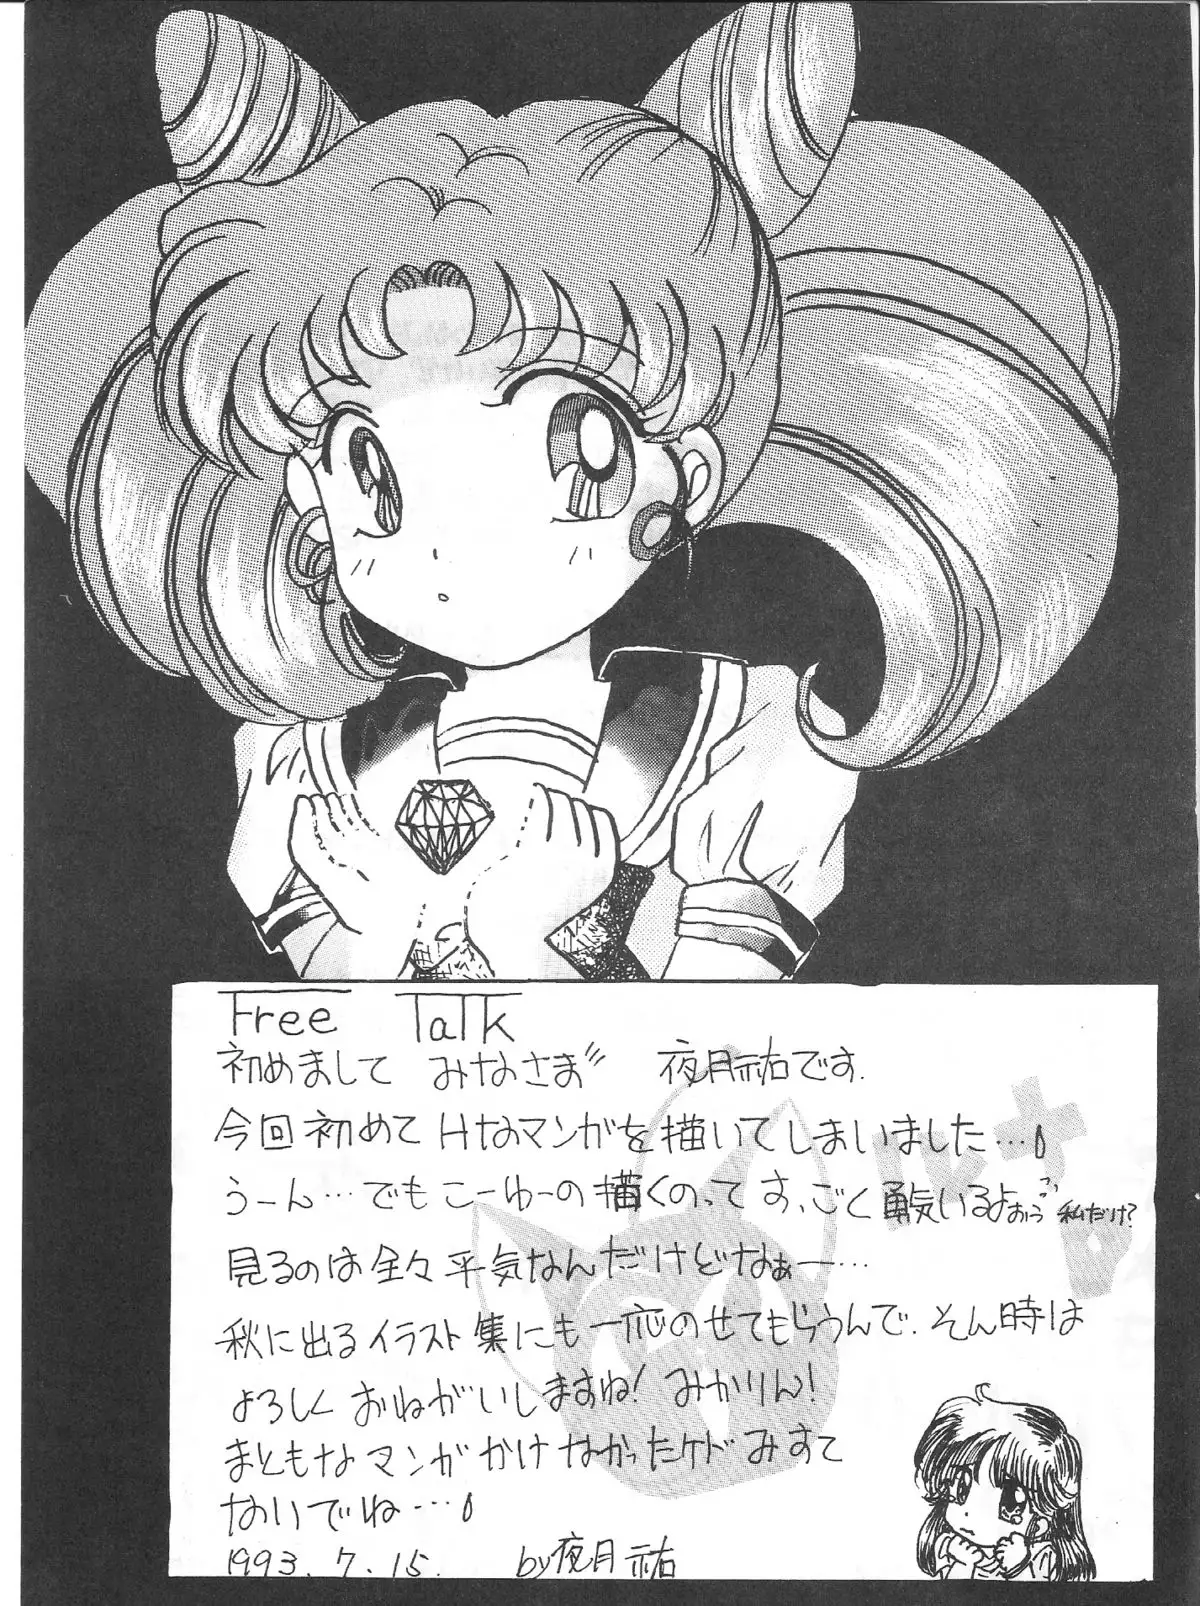 Free Talk
初めまして みなさま〃 夜月祐です.
今回初めてHなマンガを描いてしまいました…
うーん…でもこーゆーの描くのってす、ごく勇気いるよおぅ 私だけ?
見るのは全々平気なんだけどなぁー…
秋に出るイラスト集にも一応のせてもらうんで、そん時は
よろしくおねがいしますね! みかりん!
まともなマンガかけなかったケドみすて
ないでね…
1993.7.15. by夜月祐